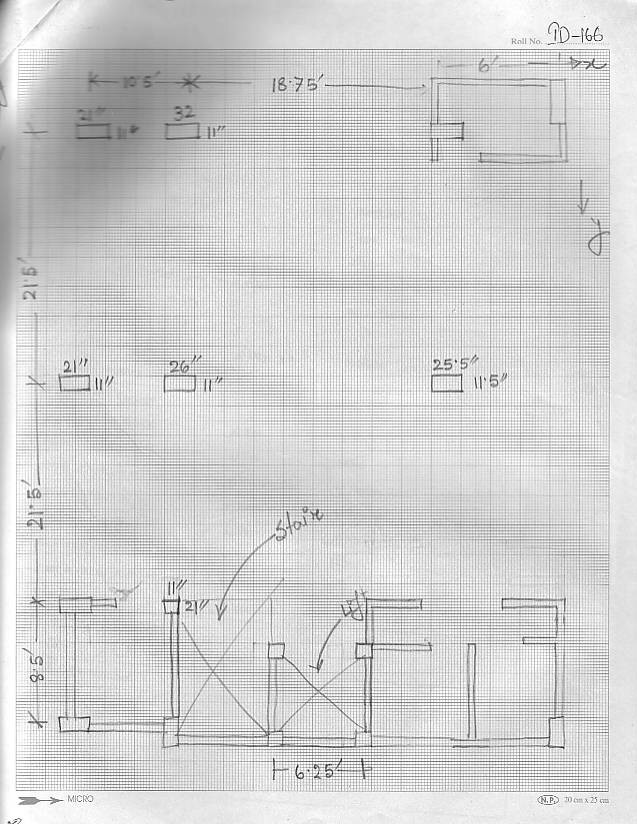 Roll No. PD-166
10.5' 18.75' 6' x
21" 11" 32 11"
y
21.5'
21" 11" 26" 11" 25.5" 11.5"
21.5'
Stair
11"
21"
Lift
8.5'
6.25'
MICRO N.P. 20 cm x 25 cm